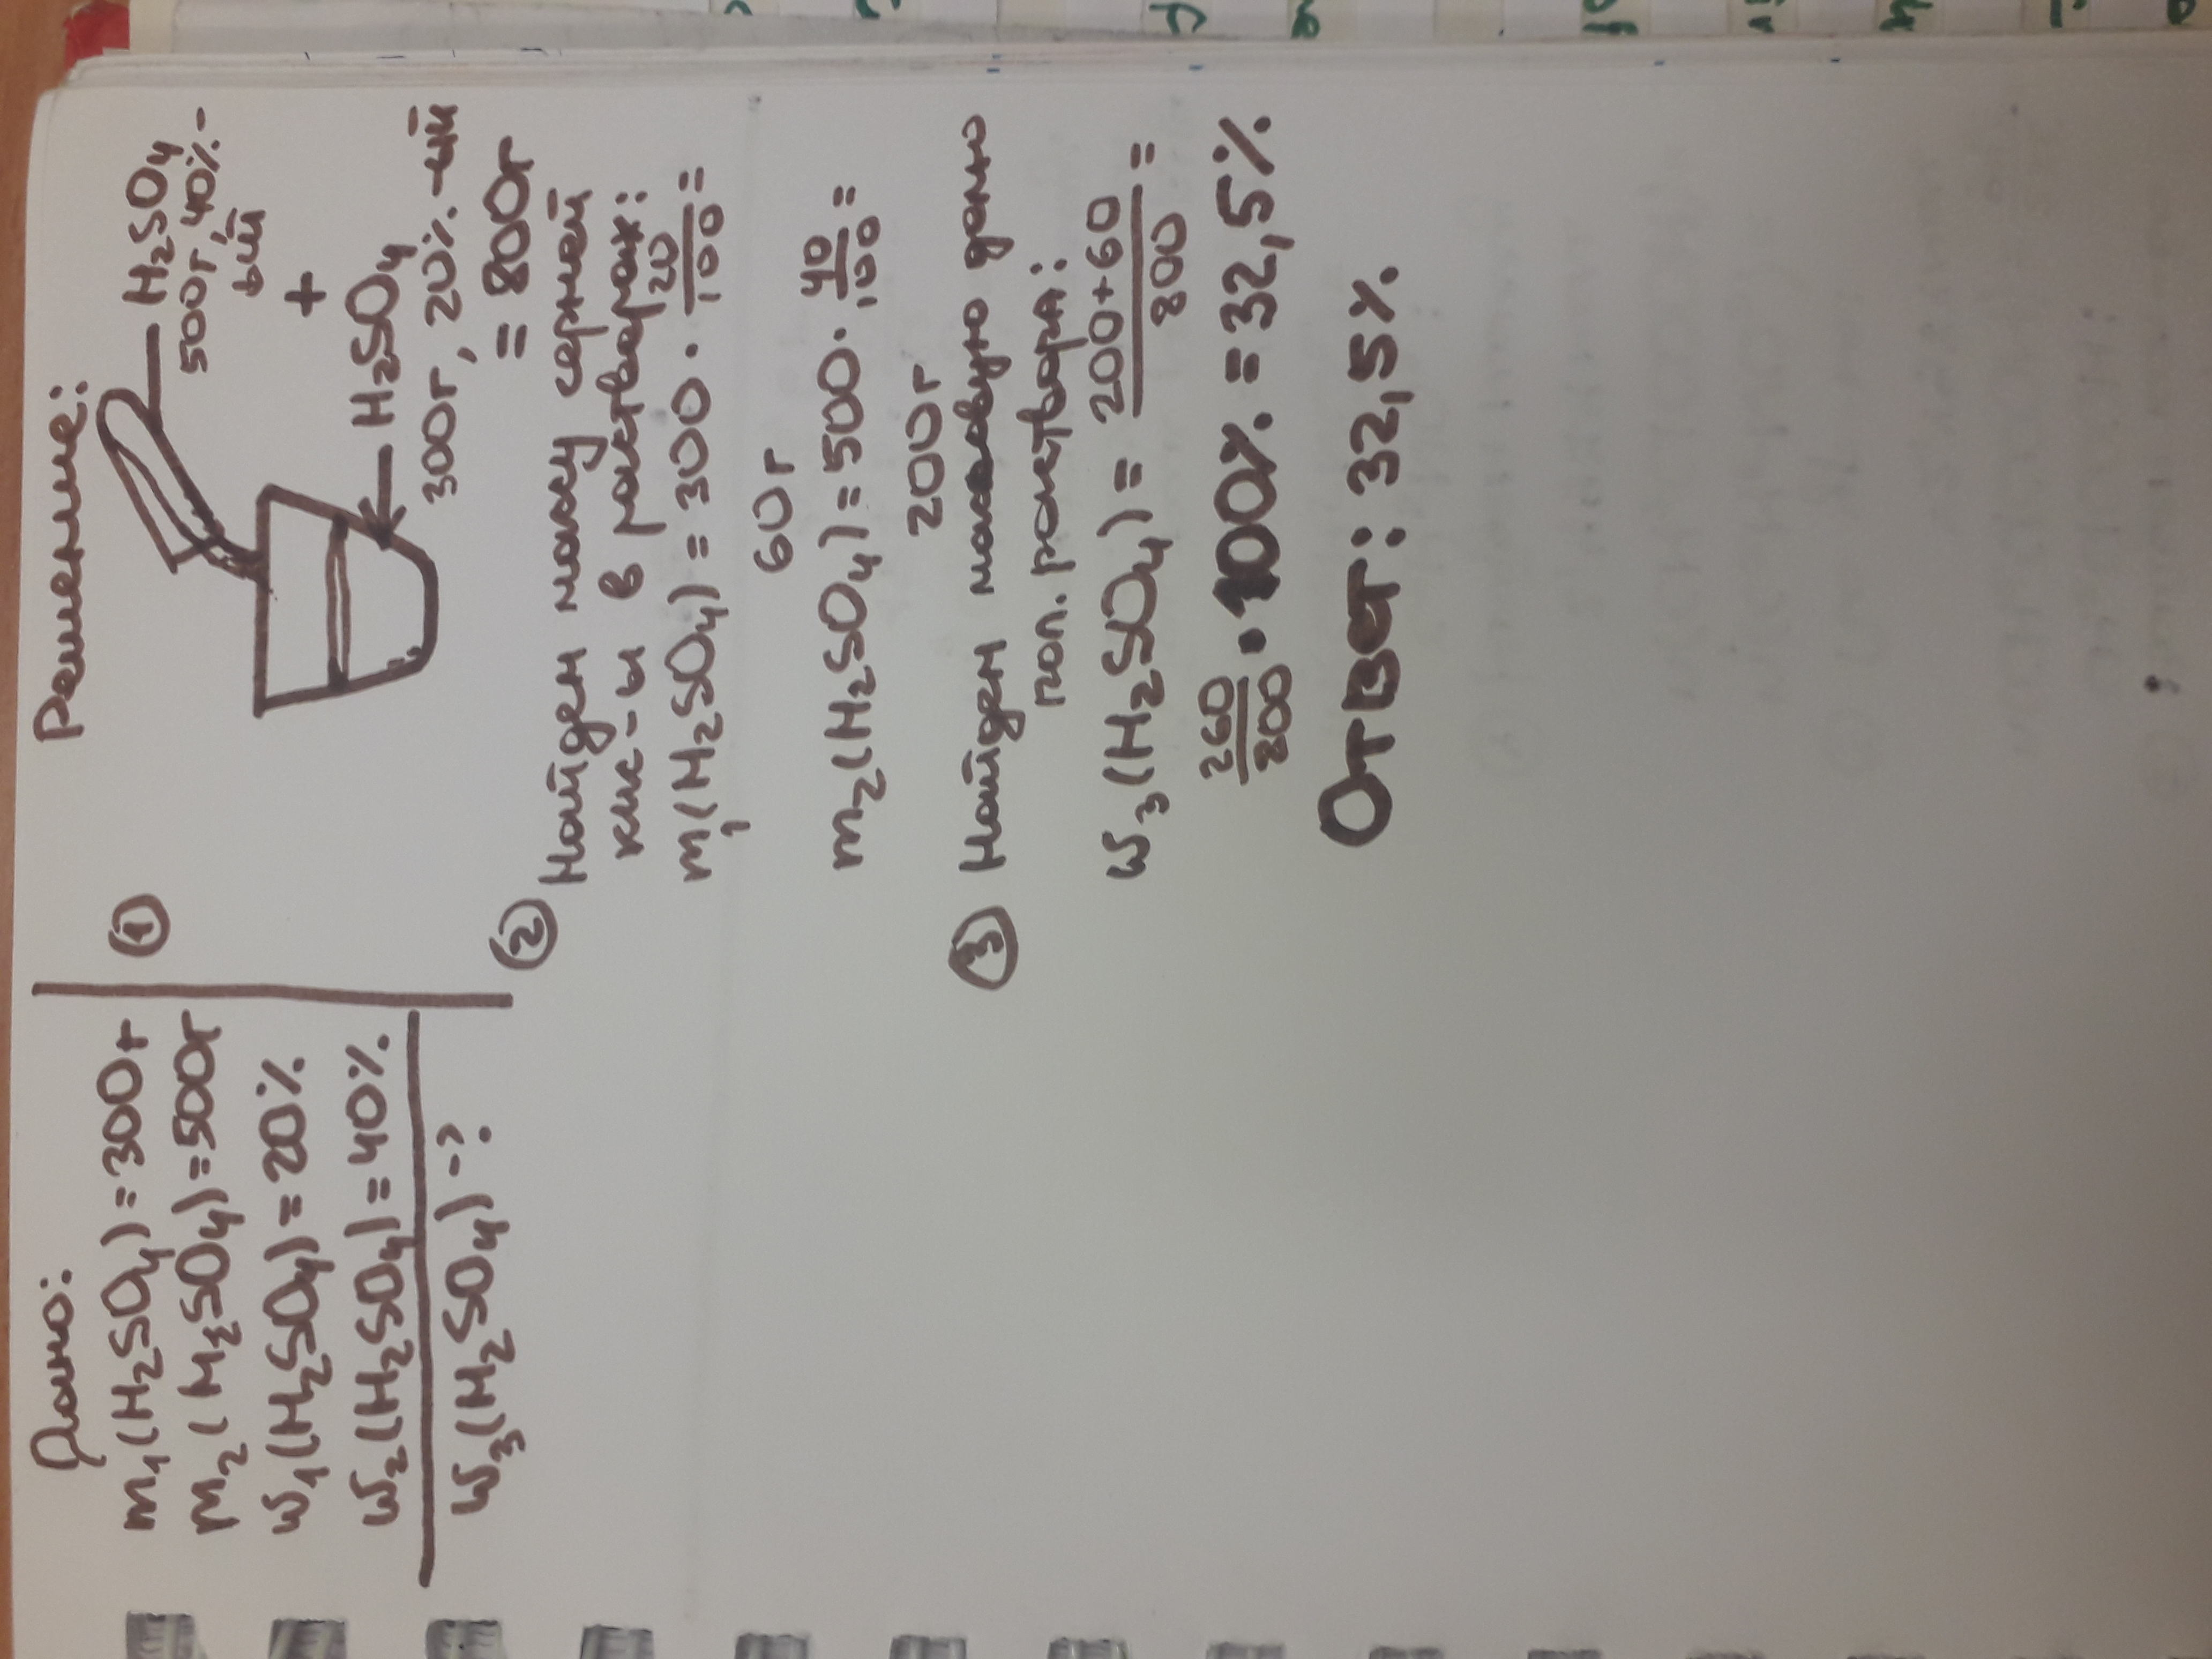 Дано:
m₁(H₂SO₄)=300г
m₂(H₂SO₄)=500г
w₁(H₂SO₄)=20%
w₂(H₂SO₄)=40%
w₃(H₂SO₄)-?
Решение:
①
H₂SO₄
500г, 40%-
ый
+
H₂SO₄
300г, 20%-ый
= 800г
② Найдем массу серной
кис-ы в растворах:
m₁(H₂SO₄)=300·20/100=
60г
m₂(H₂SO₄)=500·40/100=
200г
③ Найдем массовую долю
пол. раствора:
w₃(H₂SO₄)=200+60/800=
260/800·100%=32,5%
Ответ: 32,5%